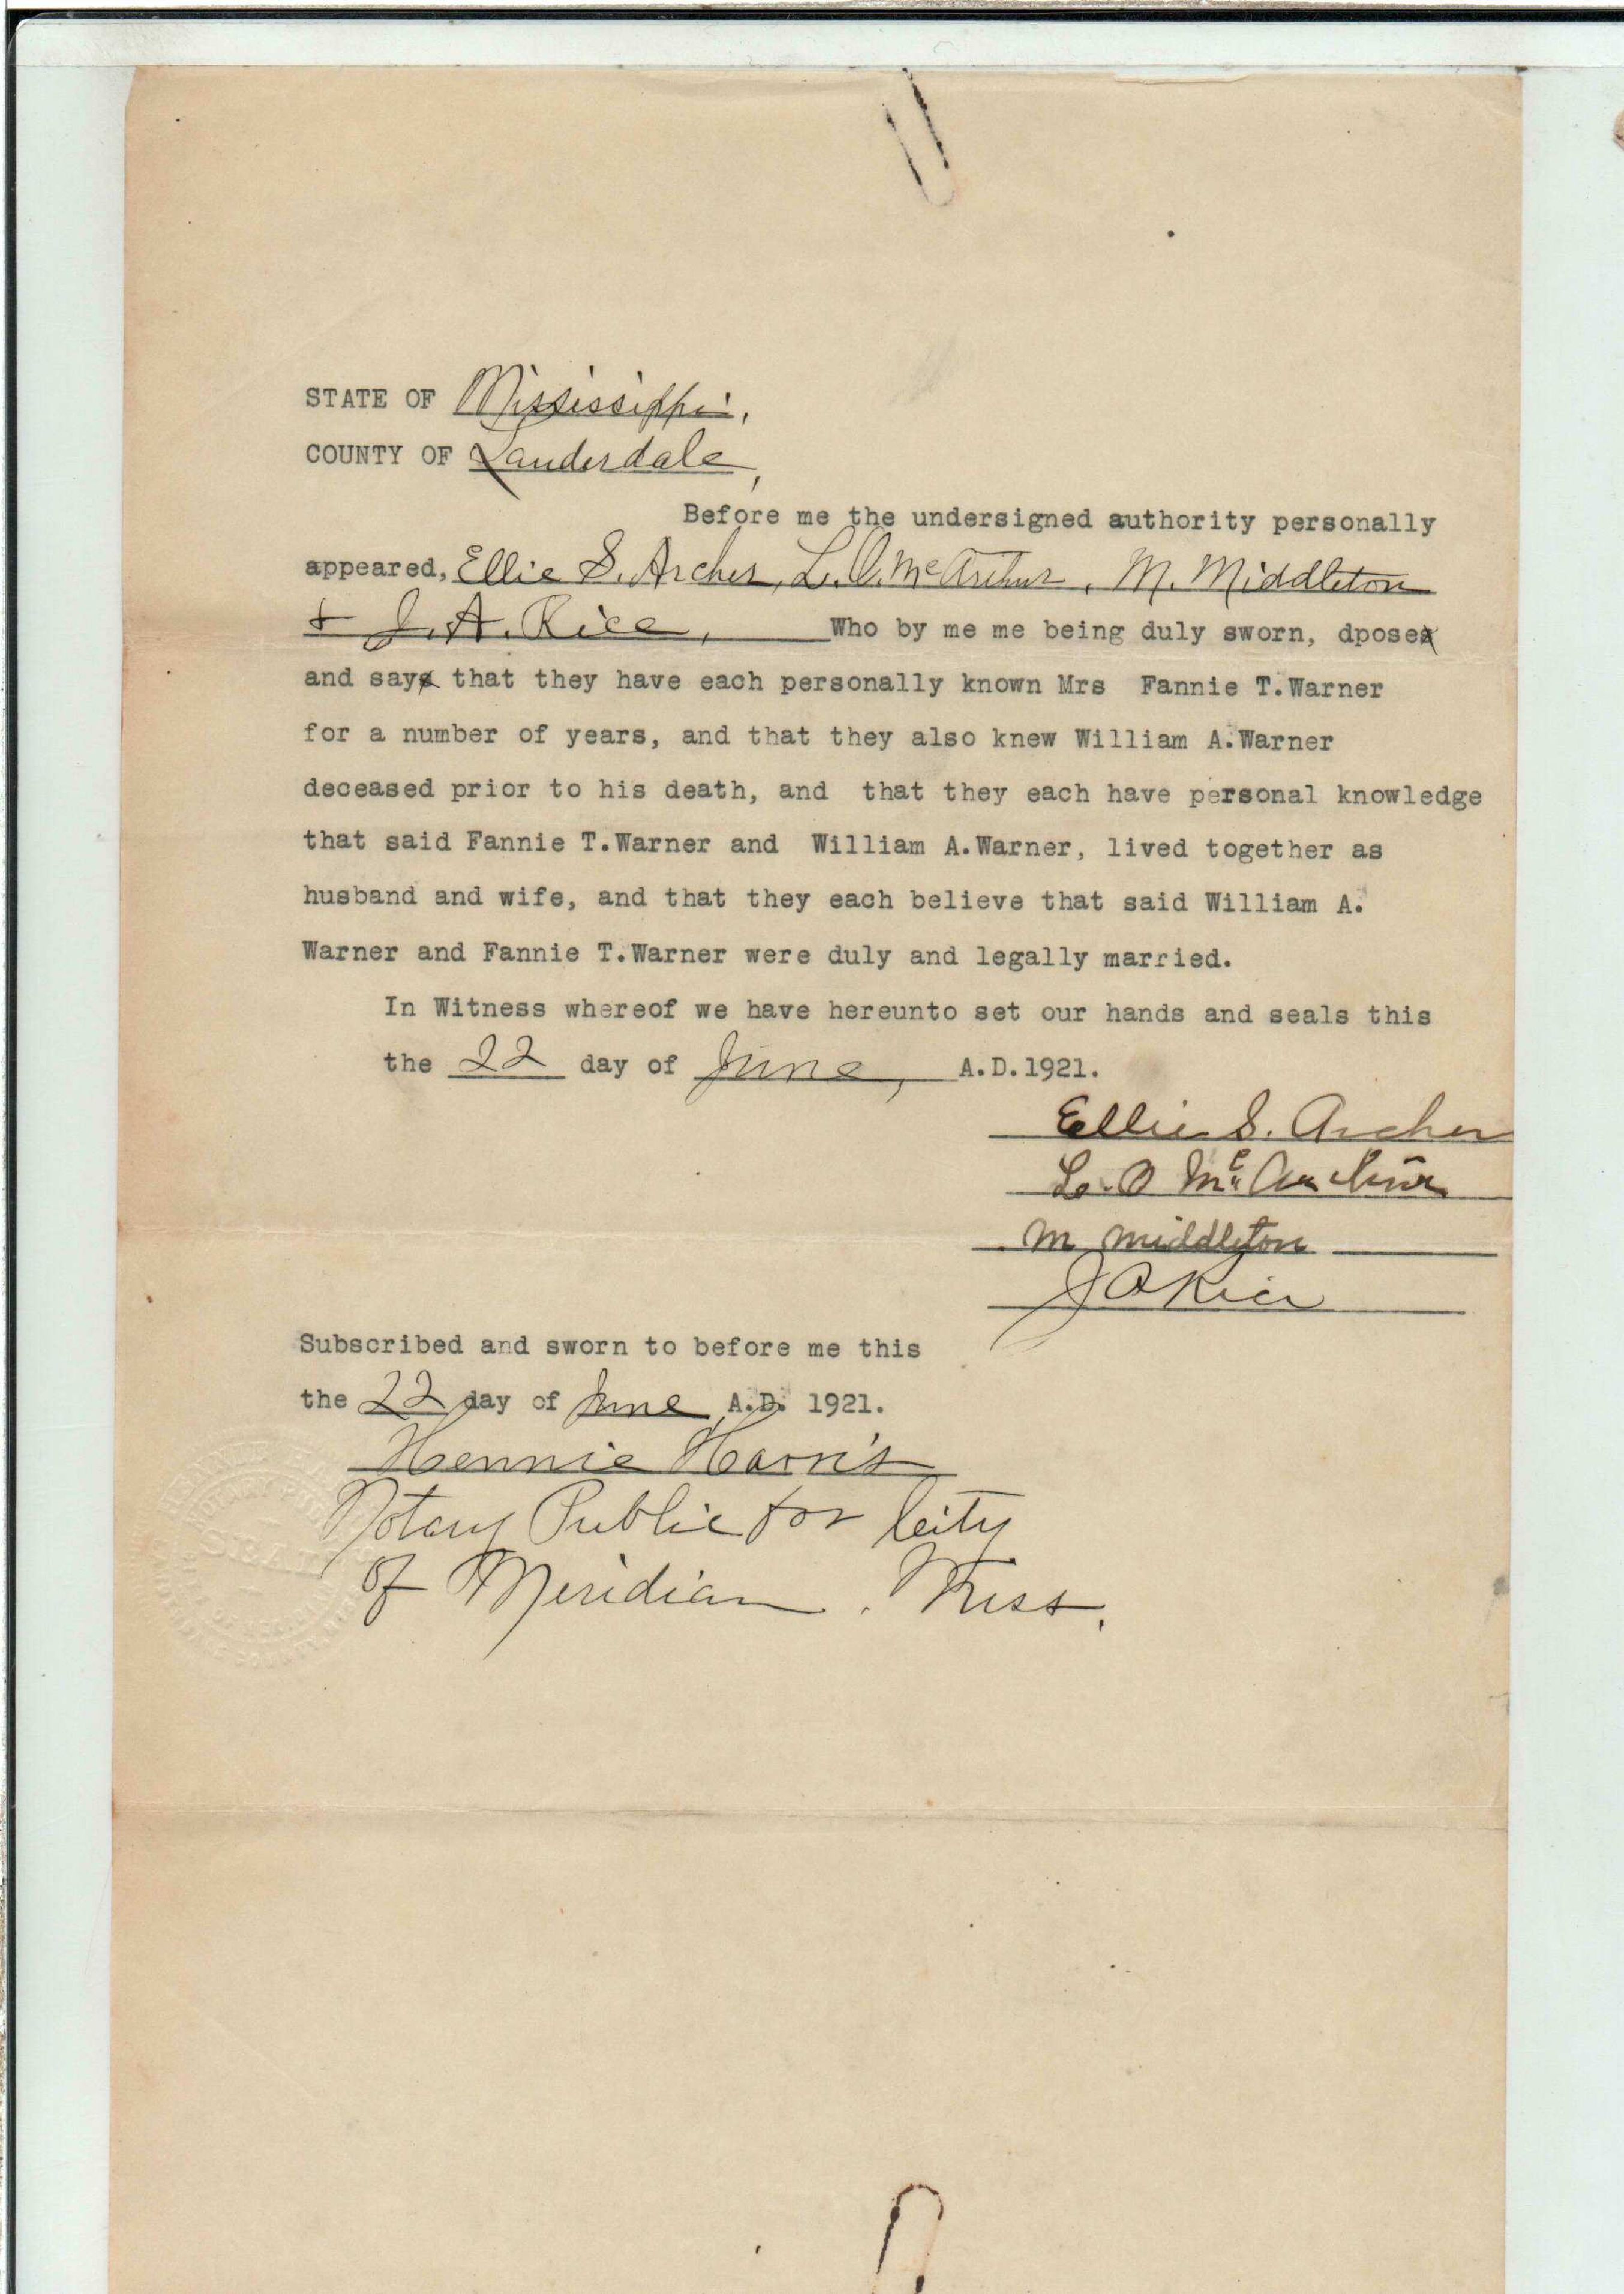 STATE OF Mississippi,
COUNTY OF Lauderdale,
Before me the undersigned authority personally
appeared, Ellie S. Archer, L. O. McArthur, M. Middleton
+ J. A. Rice, Who by me me being duly sworn, dpose
and say that they have each personally known Mrs Fannie T.Warner
for a number of years, and that they also knew William A.Warner
deceased prior to his death, and that they each have personal knowledge
that said Fannie T.Warner and William A.Warner, lived together as
husband and wife, and that they each believe that said William A.
Warner and Fannie T.Warner were duly and legally married.
In Witness whereof we have hereunto set our hands and seals this
the 22 day of June, A.D.1921.
Ellie S. Archer
L. O McArthur
M Middleton
J A Rice
Subscribed and sworn to before me this
the 22 day of June A.D. 1921.
Hennie Harris
Notary Public for City
of Meridian, Miss.
NOTARY PUBLIC